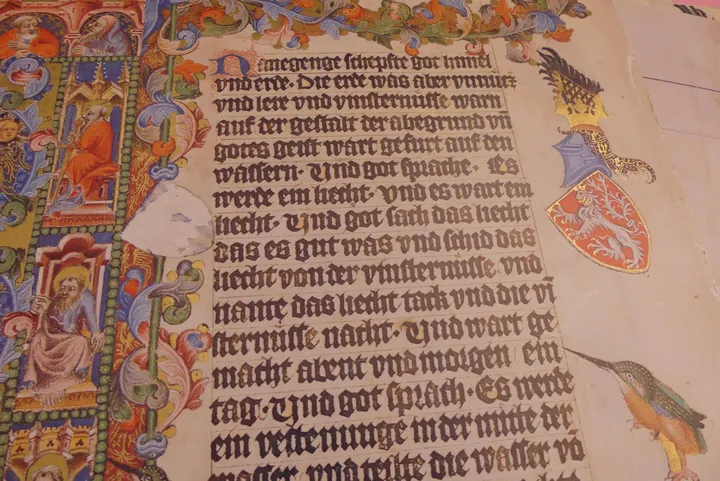 Nanegenge schepfte got himel
vnd erde · Die erde was aber vnnucz
vnd lere vnd vinsternusse warn
auf der gestalt der abegrund vn̄
gotes geist wart gefurt auf den
wassern · Vnd got sprache · Es
werde ein liecht · vnd es wart ein
liecht · Vnd got sach das liecht
das es gut was vnd schid das
liecht von der vinsternusse vnd
nante das liecht tack vnd die vī
sternusse nacht · Vnd wart ge
macht abent vnd morgen ein
tag · Vnd got sprach · Es werde
ein vestenunge in der mitte der
wasser vnd teilte die wasser vō